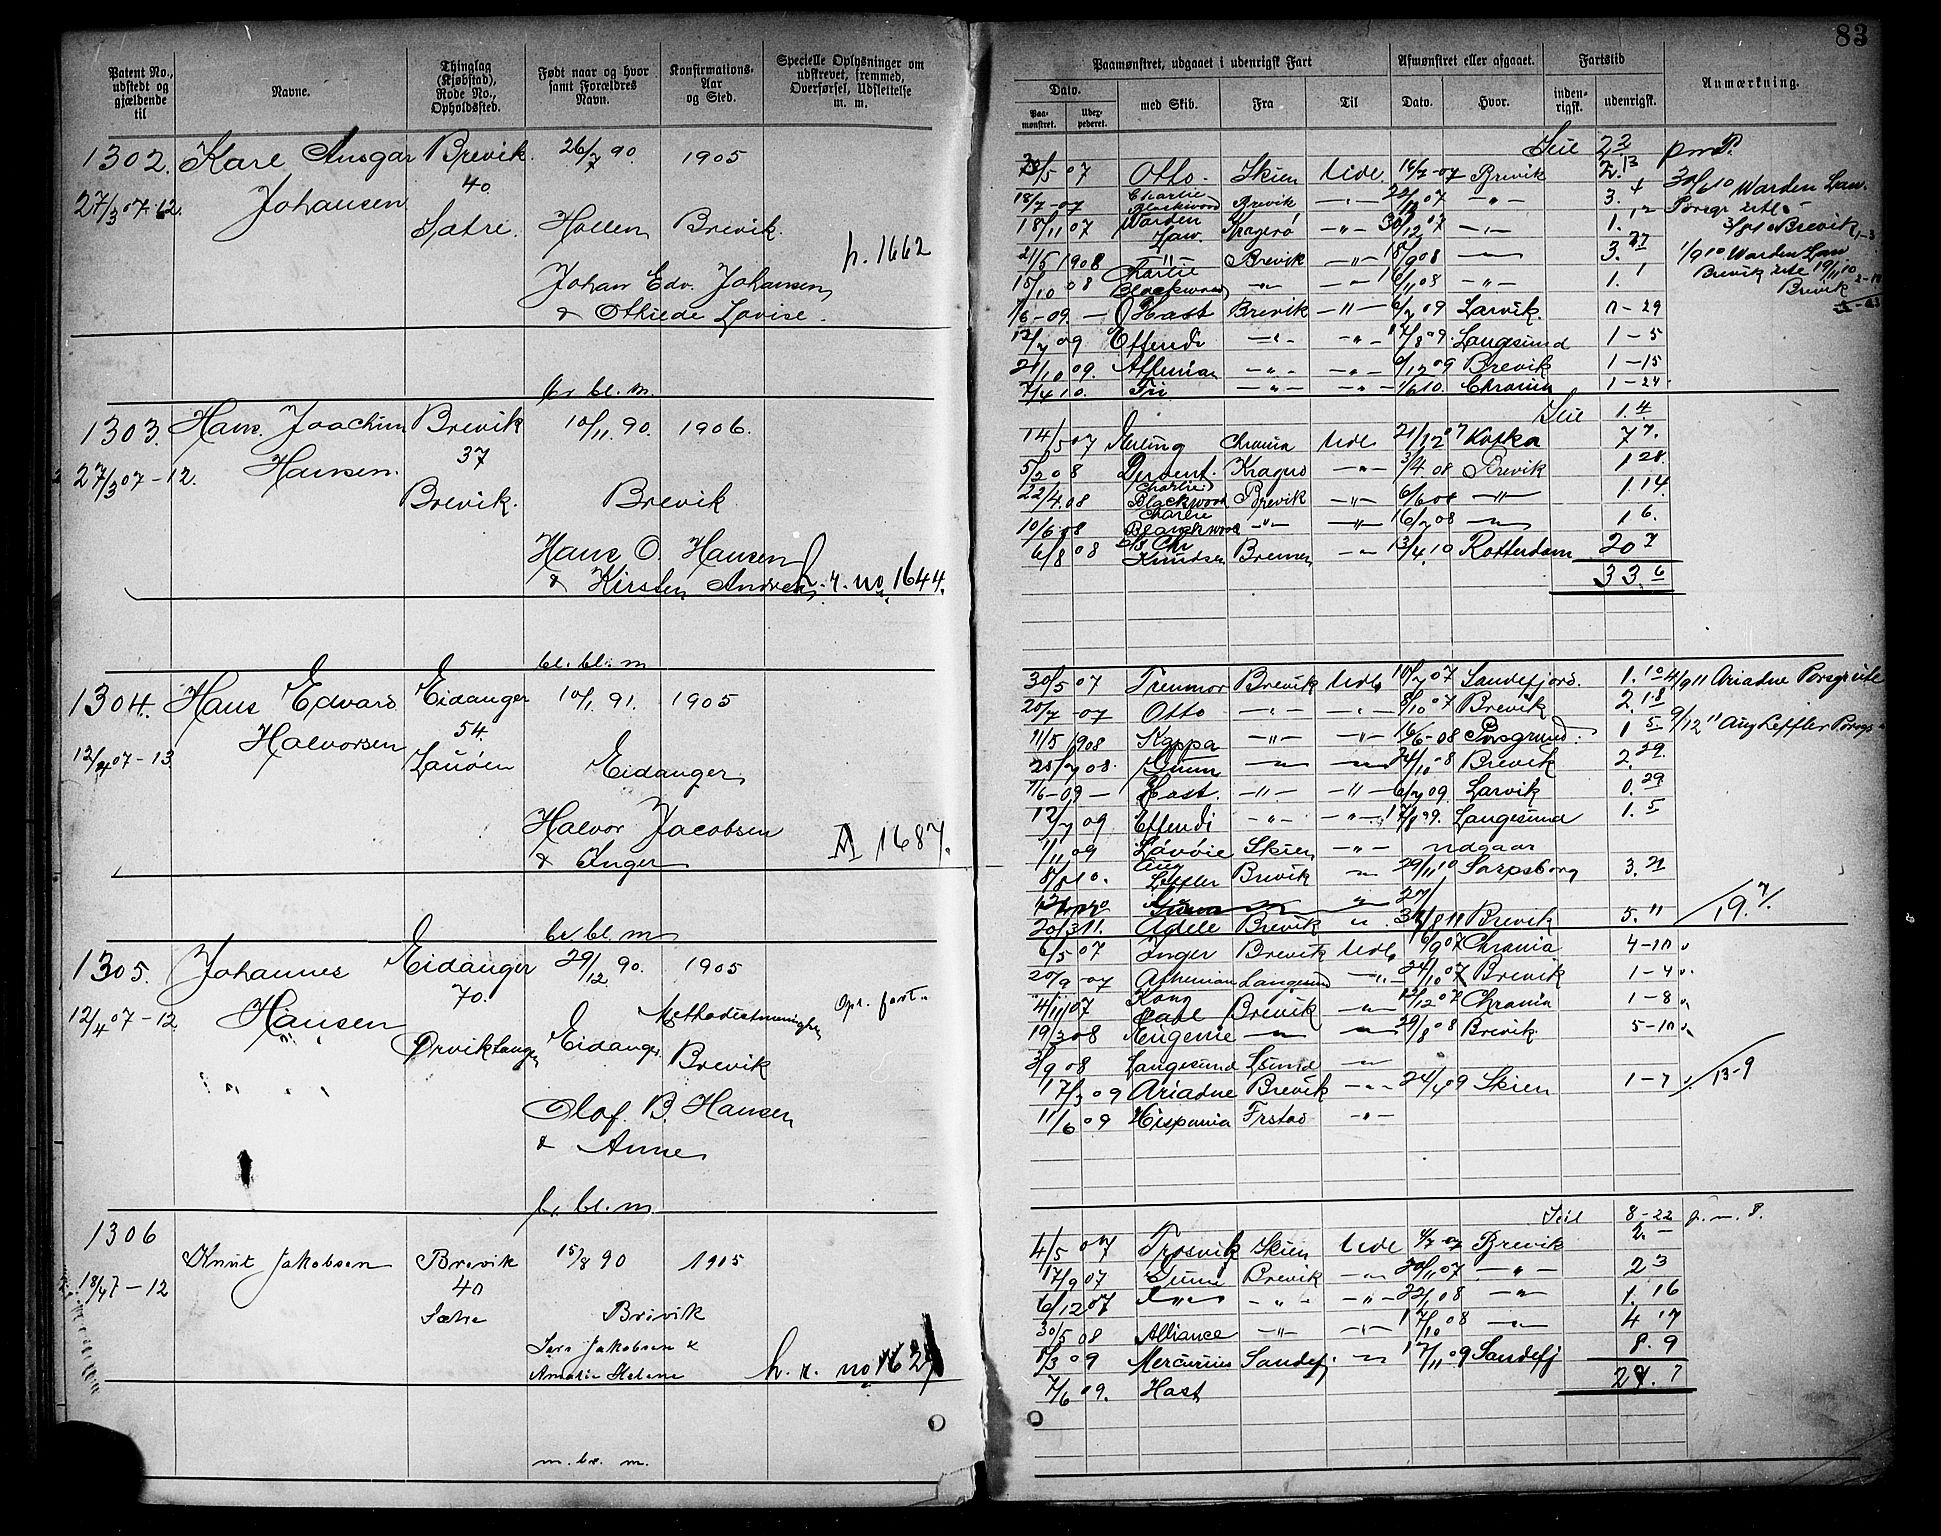 83
Patent No., udstedt og gjældende til
Navne.
Thinglag (Kjøbstad), Rode No., Opholdssted.
Født naar og hvor samt Forældres Navn.
Konfirmations-Aar og Sted.
Specielle Oplysninger om udskrevet, fremmed, Overførsel, Udslettelse m. m.
1302. Karl Ansgar Brevik. 26/7 90. 1905
27/3 07-12. Johansen 40
Satre. Hollen Brevik.
h. 1662
Johan Edv. Johansen
& Othilde Lovise.
br. bl. m.
1303. Hans Joachim Brevik 10/11 90. 1906.
27/3 07-12. Hansen. 37
Brevik. Brevik
Hans O. Hansen
& Kirsten Andrea h. r. no 1644.
bl. bl. m
1304. Hans Edvard Eidanger 10/1 91. 1905
12/4 07-13 Halvorsen 54.
Lauøen Eidanger
Halvor Jacobsen
& Inger A 1687.
br. bl. m
1305. Johannes Eidanger 29/12 90. 1905
12/4 07-12 Hansen 70. Methodistmenigheden Opr. fort.
Ørviktangen Eidanger Brevik
Olof B. Hansen
& Anne
br. bl. m.
1306 Knut Jakobsen Brevik 15/8 90 1905
18/4 7-12 40
Satre Brivik
Lars Jakobsen &
Amalie Helene h. r. no 1627
m. br. m.
Paamønstret, udgaaet i udenrigsk Fart
Afmønstret eller afgaaet.
Fartstid
Anmærkning.
Dato.
med Skib. Fra Til Dato. Hvor. inden-rigsk. udenrigsk.
Paa-mønstret. Udex-pederet.
Seil 22 pmP.
/5 07 Otto. Skien Udl. 16/7-07 Brevik 2.13
18/7-07 Charlie Blackwood Brevik -"- 07 -"- 3. 4
18/11 07 Warden Law. Kragerø -"- 30/12 07 -"- 1. 12
21/5 1908 -"- Brevik -"- 18/9 08 -"- 3. 27
15/10 08 Charlie Blackwood -"- -"- 16/11 08 -"- 1. 1
1/6-09. - Hast Brevik -"- 6/7 09 Larvik. 0-29
12/7 09 Effendi -"- -"- 17/8 09. Langesund 1-5
21/10 09. Athenian -"- -"- 6/12 09 Brevik 1-15
7/4 10. Fri -"- -"- 1/6 10. Chrania 1-24
30/6 10 Warden Law.
Porsgr. utl.
3/8 10 Brevik 1-3
1/9 10 Warden Law
Brevik utl 19/11 10
Brevik 2-18
Seil 1. 4
14/5 07 Sterling Chrania Udl 21/12 07 Kotka 7 7.
5/2 08 Derwent. Kragerø -"- 3/4 08 Brevik 1 28.
22/4 08 Charlie Blackwood Brevik -"- 6/6 08 -"- 1. 14.
10/6 08 Charlie Blackwood -"- -"- 16/7 08 -"- 1 6.
6/8 08 D/S Chr Knudsen Bremen -"- 13/4 10 Rotterdam 20 7
33. 6
30/5 07 Trenmor Brevik Udl. 10/7 07 Sandefjord. 1. 10
20/7-07 Otto -"- -"- 8/10 07 Brevik 2. 18
11/5 1908 Kappa -"- -"- 16/6-08 Porsgrund. 1 5
25/7 08. Gunn -"- -"- 24/10 08 Brevik 2. 29.
7/6-09 - Hast. -"- -"- 6/7 09. Larvik 0. 29
12/7 09 Effendi -"- -"- 17/8 09. Langesund 1. 5
1/11 09 Løvøie Skien -"- udgaar
8/8 10. Aug Leffler Brevik -"- 29/11 10 Sarpsborg 3. 21
20/3 11. Adele Brevik -"- 31/8 11 Brevik 5. 11
19. 7.
4/9 11 Ariadne Porsgr utl
9/12 11 Aug Leffler Porsgr
6/5 07 Inger Brevik Udl. 16/9 07 Chrania 4-10
20/9-07 Athenian Langesund -"- 24/10 07 Brevik 1-4
4/11 07 Kong Carl Brevik -"- 12/12 07 Chrania 1-8
19/3 08 Eugenie -"- -"- 29/8 08 Brevik 5-10
3/9 08 Langesund Lsund -"-
17/3 09 Ariadne Brevik -"- 24/4 09 Skien 1-7 13-9
11/6 09 Hispania Frstad -"-
Seil 8-22 p. m. P.
4/5 07 Trosvik Skien Udl 4/7-07 Brevik 2. -
17/9 07 Gunn Brevik -"- 20/11 07 -"- 2 3
6/12 07 -"- -"- -"- 22/1 08 -"- 1. 16
30/5 08 Alliance -"- -"- 17/10 08 -"- 4 17
8/3 09 Mercurius Sandefj. -"- 17/11 09 Sandefj 8. 9
7/6 09. Hast 27. 7